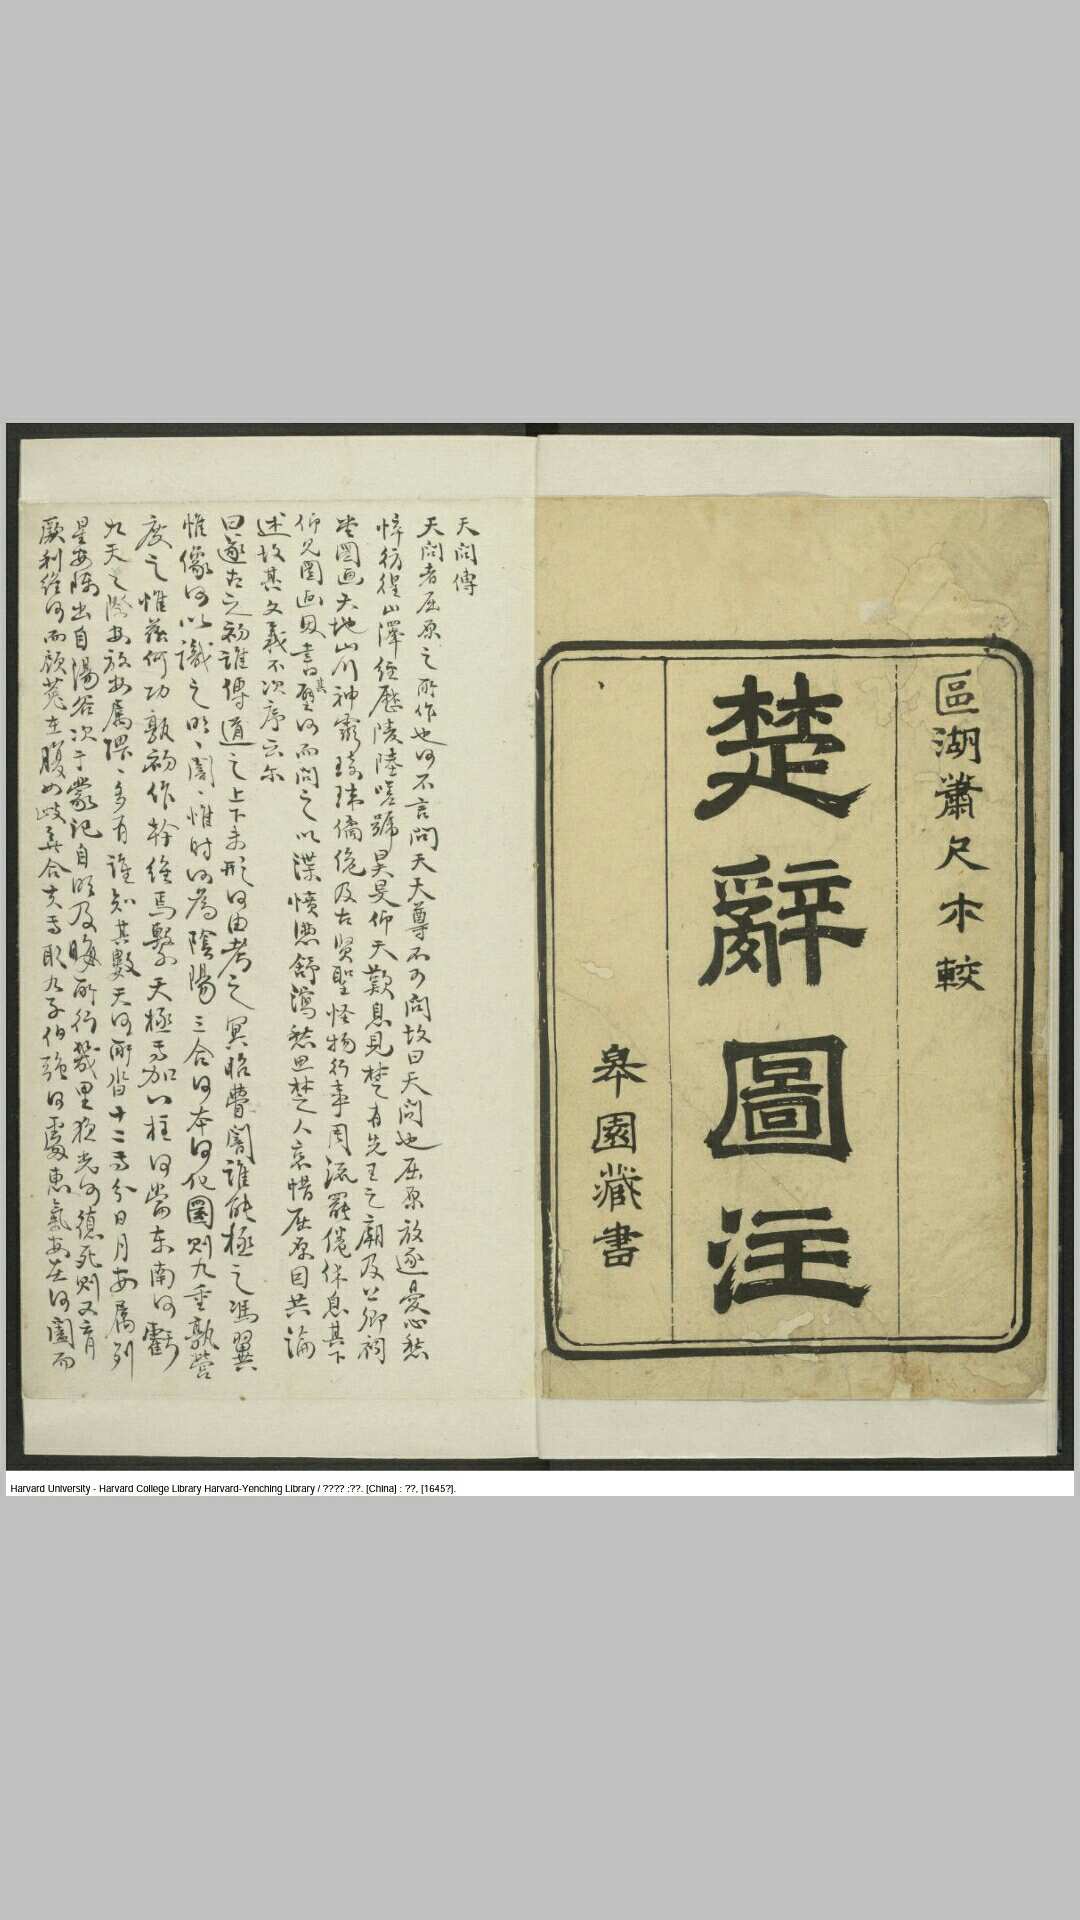 區湖蕭尺木較
楚辭圖注
皋園藏書
天問傳
天問者屈原之所作也何不言問天天尊不可問故曰天問也屈原放逐憂心愁
悴彷徨山澤經歷陵陸嗟號昊旻仰天歎息見楚有先王之廟及公卿祠
堂圖画天地山川神靈琦瑋僪佹及古賢聖怪物行事周流罷倦休息其下
仰見圖画因書其壁何而問之以渫憤懣舒瀉愁思楚人哀惜屈原因共論
述故其文義不次序云尔
曰遂古之初誰傳道之上下未形何由考之冥昭瞢闇誰能極之馮翼
惟像何以識之明〻闇〻惟时何為陰陽三合何本何化圜則九重孰營
度之惟茲何功孰初作斡維焉繫天極焉加八柱何當东南何虧
九天之際安放安屬隈〻多有誰知其數天何所沓十二焉分日月安屬列
星安陳出自湯谷次于蒙汜自明及晦所行幾里夜光何德死則又育
厥利維何而顧菟在腹女岐無合夫焉取九子伯强何處惠氣安在何闔而
Harvard University - Harvard College Library Harvard-Yenching Library / ???? :??. [China] : ??, [1645?].